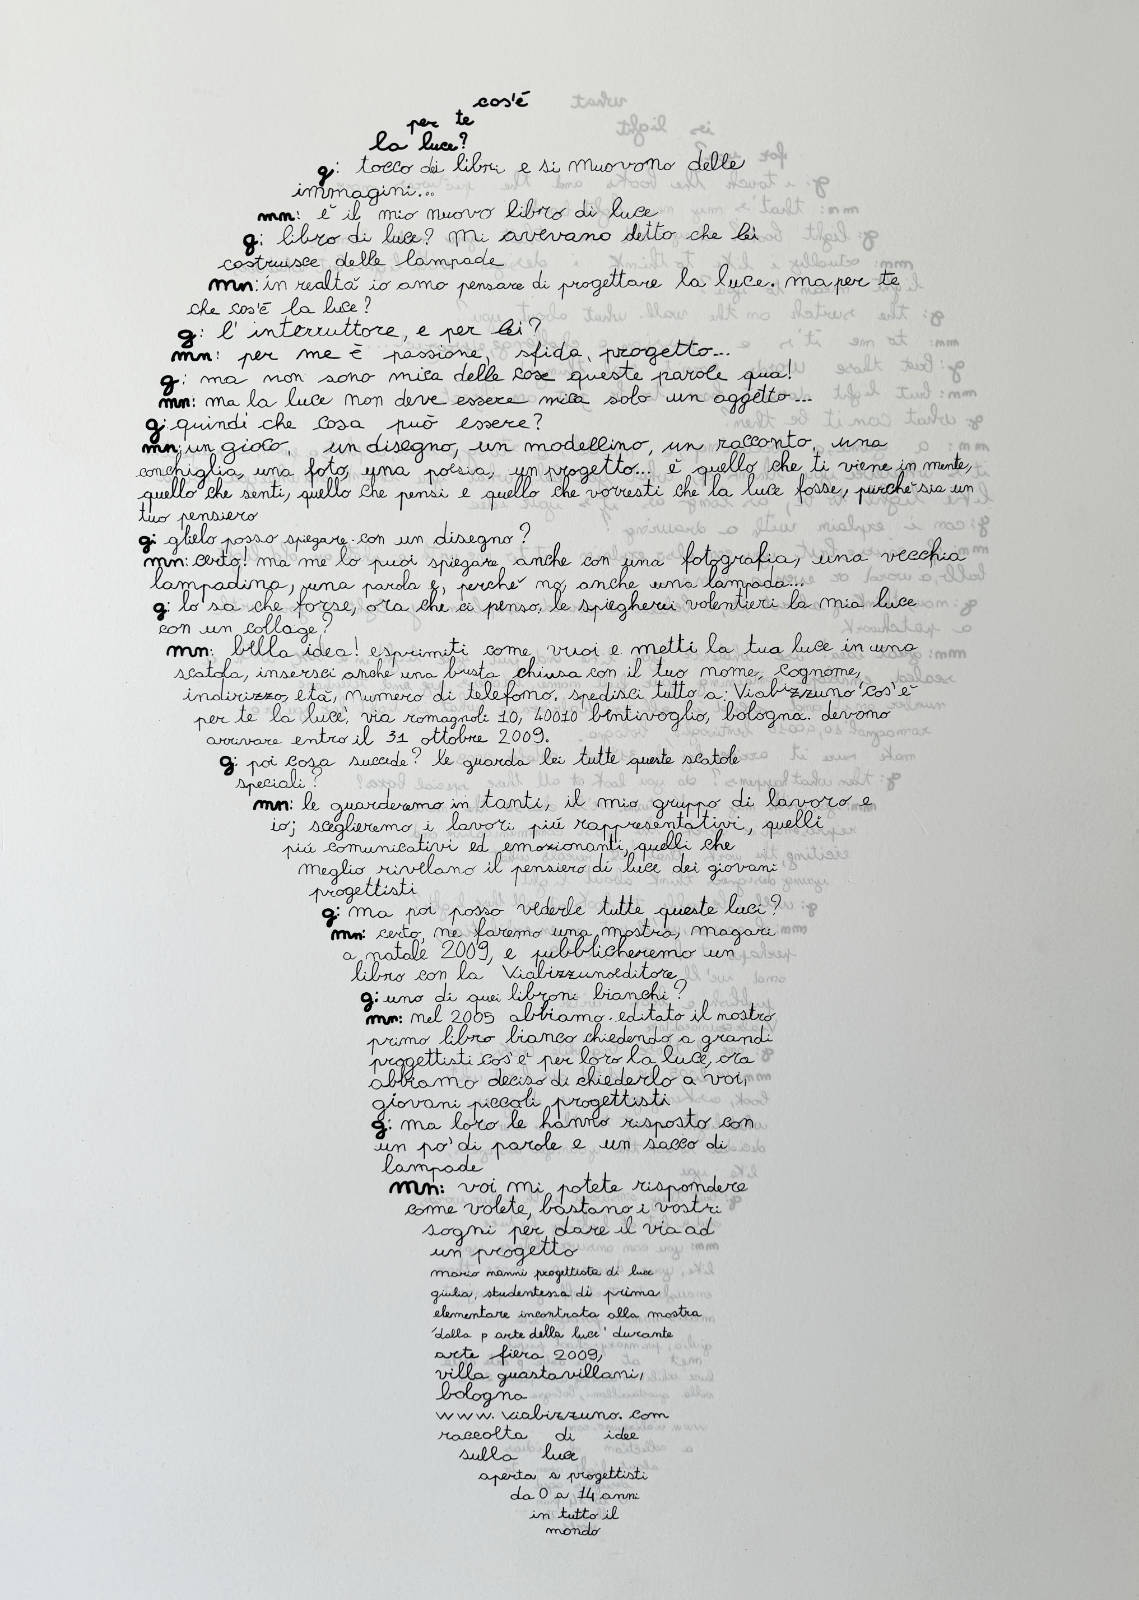 cos'è
per te
la luce?
g: tocco dei libri e si muovono delle
immagini...
mn: è il mio nuovo libro di luce
g: libro di luce? mi avevano detto che lei
costruisce delle lampade
mn: in realtà io amo pensare di progettare la luce. ma per te
che cos'è la luce?
g: l'interruttore, e per lei?
mn: per me è passione, sfida, progetto...
g: ma non sono mica delle cose queste parole qua!
mn: ma la luce non deve essere mica solo un oggetto...
g: quindi che cosa può essere?
mn: un gioco, un disegno, un modellino, un racconto, una
conchiglia, una foto, una poesia, un progetto... è quello che ti viene in mente,
quello che senti, quello che pensi e quello che vorresti che la luce fosse, purché sia un
tuo pensiero
g: glielo posso spiegare con un disegno?
mn: certo! ma me lo puoi spiegare, anche con una fotografia, una vecchia
lampadina, una parola e, perché no, anche una lampada...
g: lo sa che forse, ora che ci penso, le spiegherei volentieri la mia luce
con un collage?
mn: bella idea! esprimiti come vuoi e metti la tua luce in una
scatola, inserisci anche una busta chiusa con il tuo nome, cognome,
indirizzo, età, numero di telefono. spedisci tutto a: Viabizzuno 'cos'è
per te la luce', via romagnoli 10, 40010 bentivoglio, bologna. devono
arrivare entro il 31 ottobre 2009.
g: poi cosa succede? le guarda lei tutte queste scatole
speciali?
mn: le guarderemo in tanti, il mio gruppo di lavoro e
io; sceglieremo i lavori più rappresentativi, quelli
più comunicativi ed emozionanti, quelli che
meglio rivelano il pensiero di luce dei giovani
progettisti
g: ma poi posso vederle tutte queste luci?
mn: certo, ne faremo una mostra, magari
a natale 2009, e pubblicheremo un
libro con la Viabizzunoeditore
g: uno di quei libroni bianchi?
mn: nel 2005 abbiamo editato il nostro
primo libro bianco chiedendo a grandi
progettisti cos'è per loro la luce, ora
abbiamo deciso di chiederlo a voi,
giovani piccoli progettisti
g: ma loro le hanno risposto con
un po' di parole e un sacco di
lampade
mn: voi mi potete rispondere
come volete, bastano i vostri
sogni per dare il via ad
un progetto
mario nanni progettista di luce
giulia, studentessa di prima
elementare incontrata alla mostra
'dalla p arte della luce' durante
arte fiera 2009,
villa guastavillani,
bologna
www.viabizzuno.com
raccolta di idee
sulla luce
aperta a progettisti
da 0 a 14 anni
in tutto il
mondo